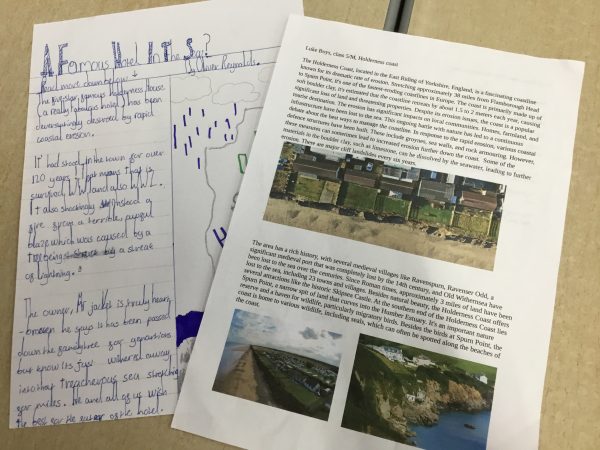 A Famous Hotel In The Sea?
by Oliver Reynolds.
Read more down below
The five star, famous Holderness House
(a really
has been
devastatingly destroyed by rapid
coastal erosion.
It had stood in the town for over
120 years
that is
survival, WW1 and also WW2.
It also shockingly
a
fire from a terrible, painful
blaze which was caused by a
tree being
by a streak
of lightning.
The owner, Mr Jacket is truly heart
-broken he says it has been passed
down the family tree for generations
but know its just withered away
into that treacherous sea stretching
for miles. We and all of us wish
the best for the
of the hotel.
Luke Boys, class 5/M, Holderness coast
The Holderness Coast, located in the East Riding of Yorkshire, England, is a fascinating coastline
known for its dramatic rate of erosion. Stretching approximately 38 miles from Flamborough Head
to Spurn Point, it's one of the fastest-eroding coastlines in Europe. The coast is primarily made up of
soft boulder clay, it's estimated that the coastline retreats by about 1.5 to 2 meters each year, causing
significant loss of land and threatening properties. Despite its erosion issues, the coast is a popular
tourist destination. The erosion has significant impacts on local communities. Homes, farmland, and
infrastructure have been lost to the sea. This ongoing battle with nature has led to a continuous
debate about the best ways to manage the coastline. In response to the rapid erosion, various coastal
defence structures have been built. These include groynes, sea walls, and rock armouring. However,
these measures can sometimes lead to increased erosion further down the coast. Some of the
materials in the boulder clay, such as limestone, can be dissolved by the seawater, leading to further
erosion. There are major cliff landslides every six years.
The area has a rich history, with several medieval villages like Ravenspurn, Ravenser Odd, a
significant medieval port that was completely lost by the 14th century, and Old Withernsea have
been lost to the sea over the centuries. Since Roman times, approximately 3 miles of land have been
lost to the sea, including 23 towns and villages. Besides natural beauty, the Holderness Coast offers
several attractions like the historic Skipsea Castle. At the southern end of the Holderness Coast lies
Spurn Point, a narrow spit of land that curves into the Humber Estuary. It's an important nature
reserve and a haven for wildlife, particularly migratory birds. Besides the birds at Spurn Point, the
coast is home to various wildlife, including seals, which can often be spotted along the beaches of
the coast.